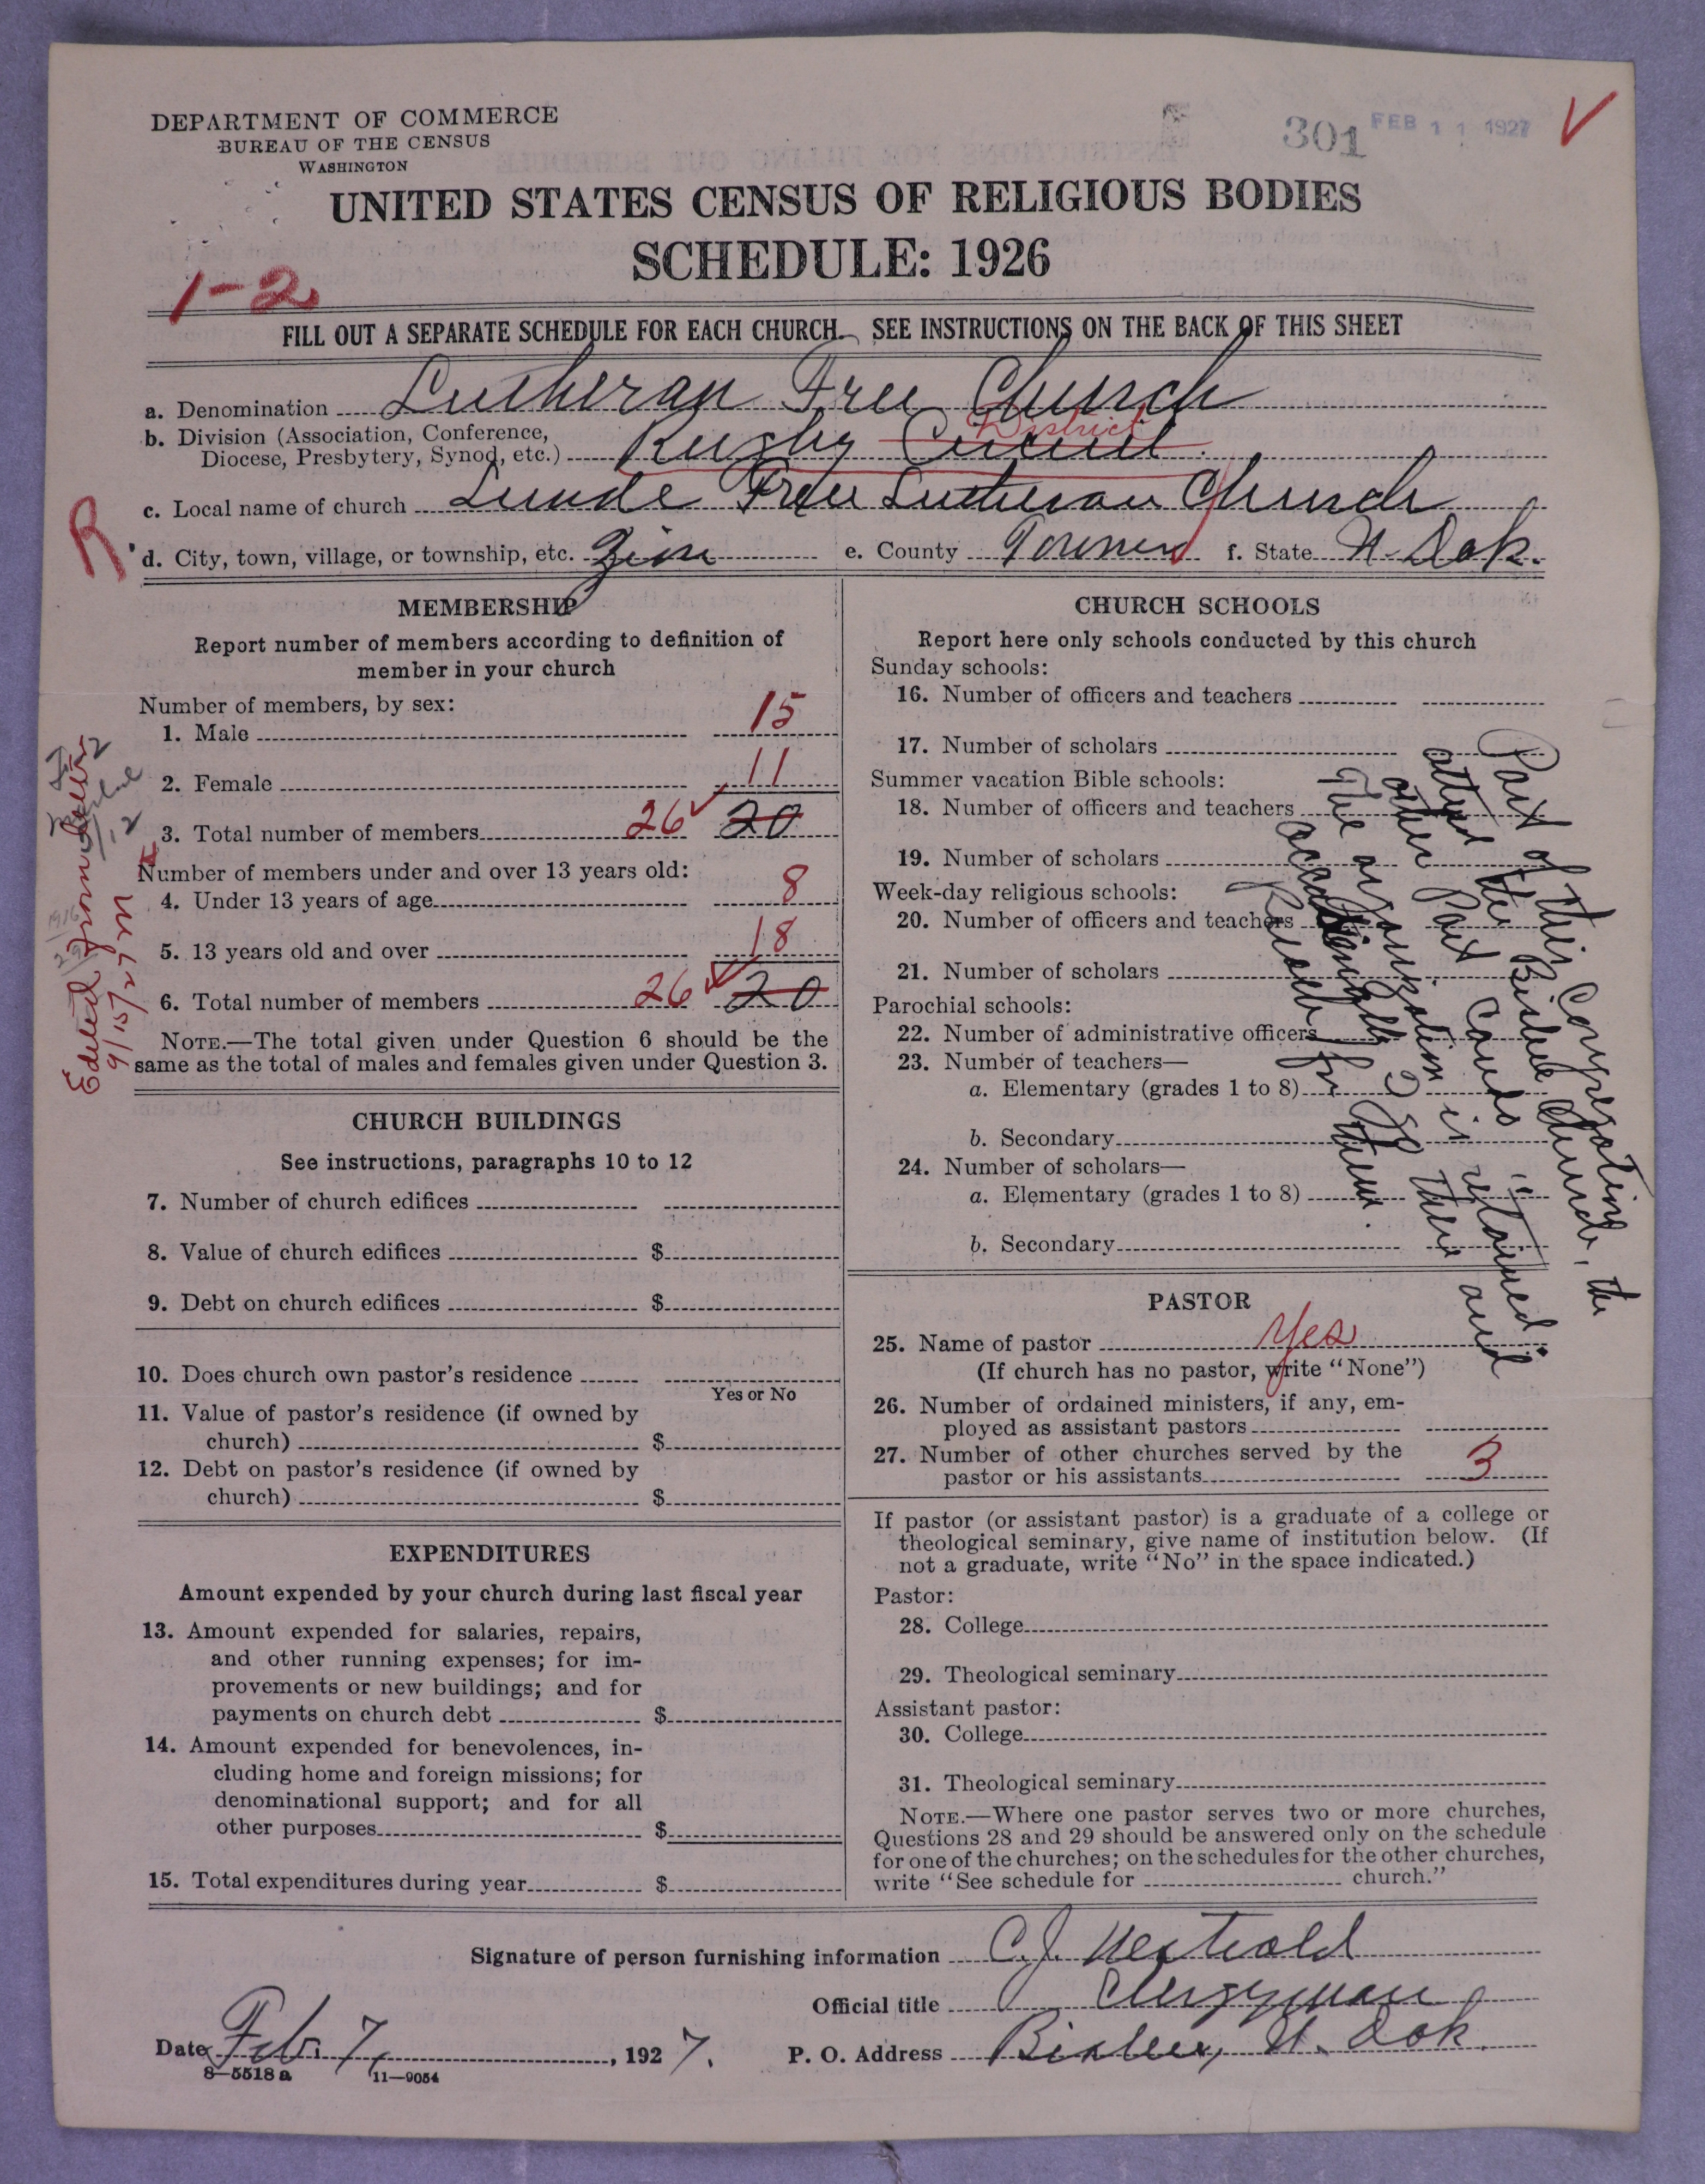 DEPARTMENT OF COMMERCE
BUREAU OF THE CENSUS
WASHINGTON
301 FEB 11 1927
UNITED STATES CENSUS OF RELIGIOUS BODIES
SCHEDULE: 1926
1-2
FILL OUT A SEPARATE SCHEDULE FOR EACH CHURCH. SEE INSTRUCTIONS ON THE BACK OF THIS SHEET
a. Denomination Lutheran Free Church
b. Division (Association, Conference,
Diocese, Presbytery, Synod, etc.) Rugby Circuit District
c. Local name of church Lunde Free Lutheran Church
R
d. City, town, village, or township, etc. Zion e. County Towner f. State N. Dak.
MEMBERSHIP
Report number of members according to definition of
member in your church
Number of members, by sex:
1. Male 15
2. Female 11
3. Total number of members 26 20
Number of members under and over 13 years old:
4. Under 13 years of age 8
5. 13 years old and over 18
6. Total number of members 26 20
NOTE.—The total given under Question 6 should be the
same as the total of males and females given under Question 3.
Edited from
9/15/27 M
CHURCH BUILDINGS
See instructions, paragraphs 10 to 12
7. Number of church edifices
8. Value of church edifices $
9. Debt on church edifices $
10. Does church own pastor's residence
Yes or No
11. Value of pastor's residence (if owned by
church) $
12. Debt on pastor's residence (if owned by
church) $
EXPENDITURES
Amount expended by your church during last fiscal year
13. Amount expended for salaries, repairs,
and other running expenses; for im-
provements or new buildings; and for
payments on church debt $
14. Amount expended for benevolences, in-
cluding home and foreign missions; for
denominational support; and for all
other purposes $
15. Total expenditures during year $
CHURCH SCHOOLS
Report here only schools conducted by this church
Sunday schools:
16. Number of officers and teachers
17. Number of scholars
Summer vacation Bible schools:
18. Number of officers and teachers
19. Number of scholars
Week-day religious schools:
20. Number of officers and teachers
21. Number of scholars
Parochial schools:
22. Number of administrative officers
23. Number of teachers—
a. Elementary (grades 1 to 8)
b. Secondary
24. Number of scholars—
a. Elementary (grades 1 to 8)
b. Secondary
Part of this Congregation, the
attend the Bisbee Church,
other Part Cando
The organization is retained.
accordingly I then and
for them.
PASTOR
25. Name of pastor Yes
(If church has no pastor, write "None")
26. Number of ordained ministers, if any, em-
ployed as assistant pastors
27. Number of other churches served by the
pastor or his assistants 3
If pastor (or assistant pastor) is a graduate of a college or
theological seminary, give name of institution below. (If
not a graduate, write "No" in the space indicated.)
Pastor:
28. College
29. Theological seminary
Assistant pastor:
30. College
31. Theological seminary
NOTE.—Where one pastor serves two or more churches,
Questions 28 and 29 should be answered only on the schedule
for one of the churches; on the schedules for the other churches,
write "See schedule for church."
Signature of person furnishing information C.J. Nestvold
Official title Clergyman
Date Feb. 7, 1927. P. O. Address Bisbee, N. Dak.
8—5518 a 11—9054